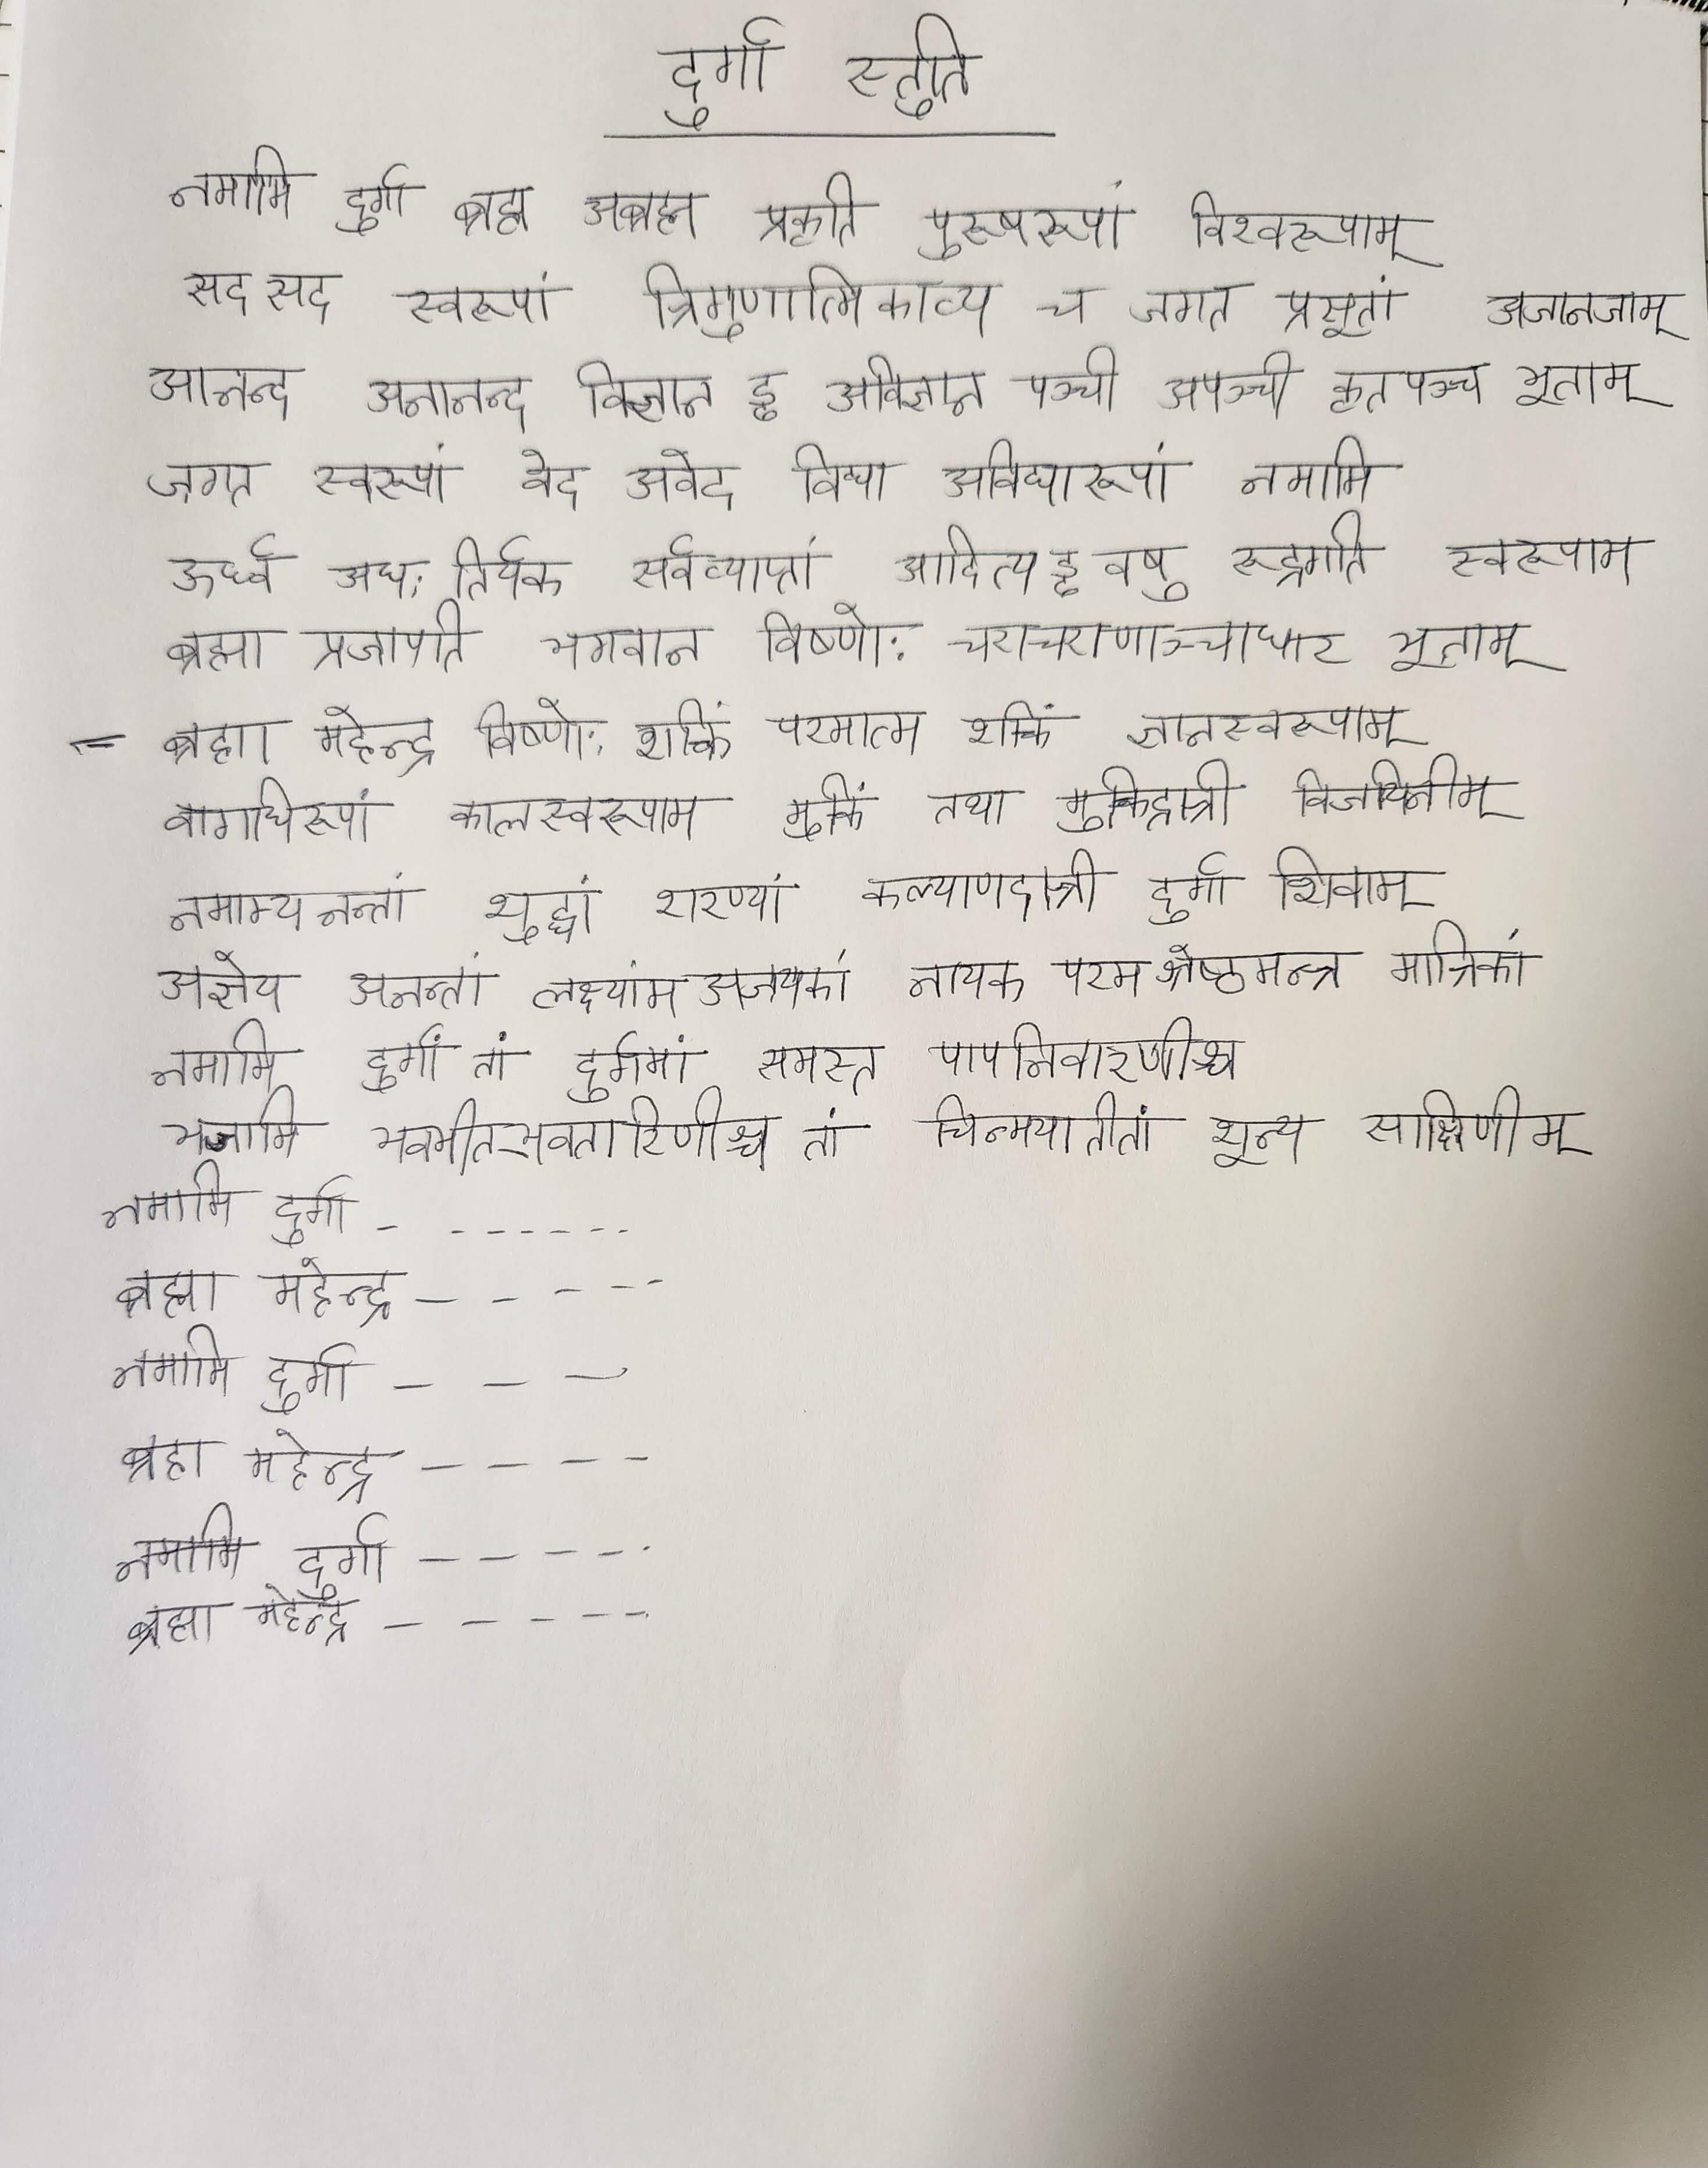 दुर्गा स्तुति
नमामि दुर्गा ब्रह्म अब्रह्म प्रकृति पुरूषरूपां विश्वरूपाम्
सद सद स्वरूपां त्रिगुणात्मिकाव्य च जगत प्रसूतां अजानजाम्
आनन्द अनानन्द विज्ञान हृ अविज्ञान पञ्ची अपञ्ची कृतपञ्च भूताम्
जगत स्वरूपां वेद अवेद विद्या अविद्यारूपां नमामि
ऊर्ध्व अधः तिर्यक सर्वव्याप्तां आदित्य हृ वषु रूद्रगति स्वरूपाम
ब्रह्मा प्रजापति भगवान विष्णोः चराचराणाञ्चाधार भूताम्
ब्रह्मा महेन्द्र विष्णोः शक्तिं परमात्म शक्तिं ज्ञानस्वरूपाम्
वागाधिरूपां कालस्वरूपाम मुक्तिं तथा मुक्तिदात्री विजयिनीम्
नमाम्यनन्तां शुद्धां शरण्यां कल्याणदात्री दुर्गा शिवाम्
अज्ञेय अनन्तां लक्ष्यांम अजयकां नायक परम श्रेष्ठमन्त्र मात्रिकां
नमामि दुर्गां तां दुर्गमां समस्त पापनिवारणीश्च
भजामि भवभीतभवतारिणीश्च तां चिन्मयातीतां शून्य साक्षिणीम्
नमामि दुर्गा - ------
ब्रह्मा महेन्द्र - - - - -
नमामि दुर्गा - - -
ब्रह्मा महेन्द्र - - - -
नमामि दुर्गा - - - - -
ब्रह्मा महेन्द्र - - - - -